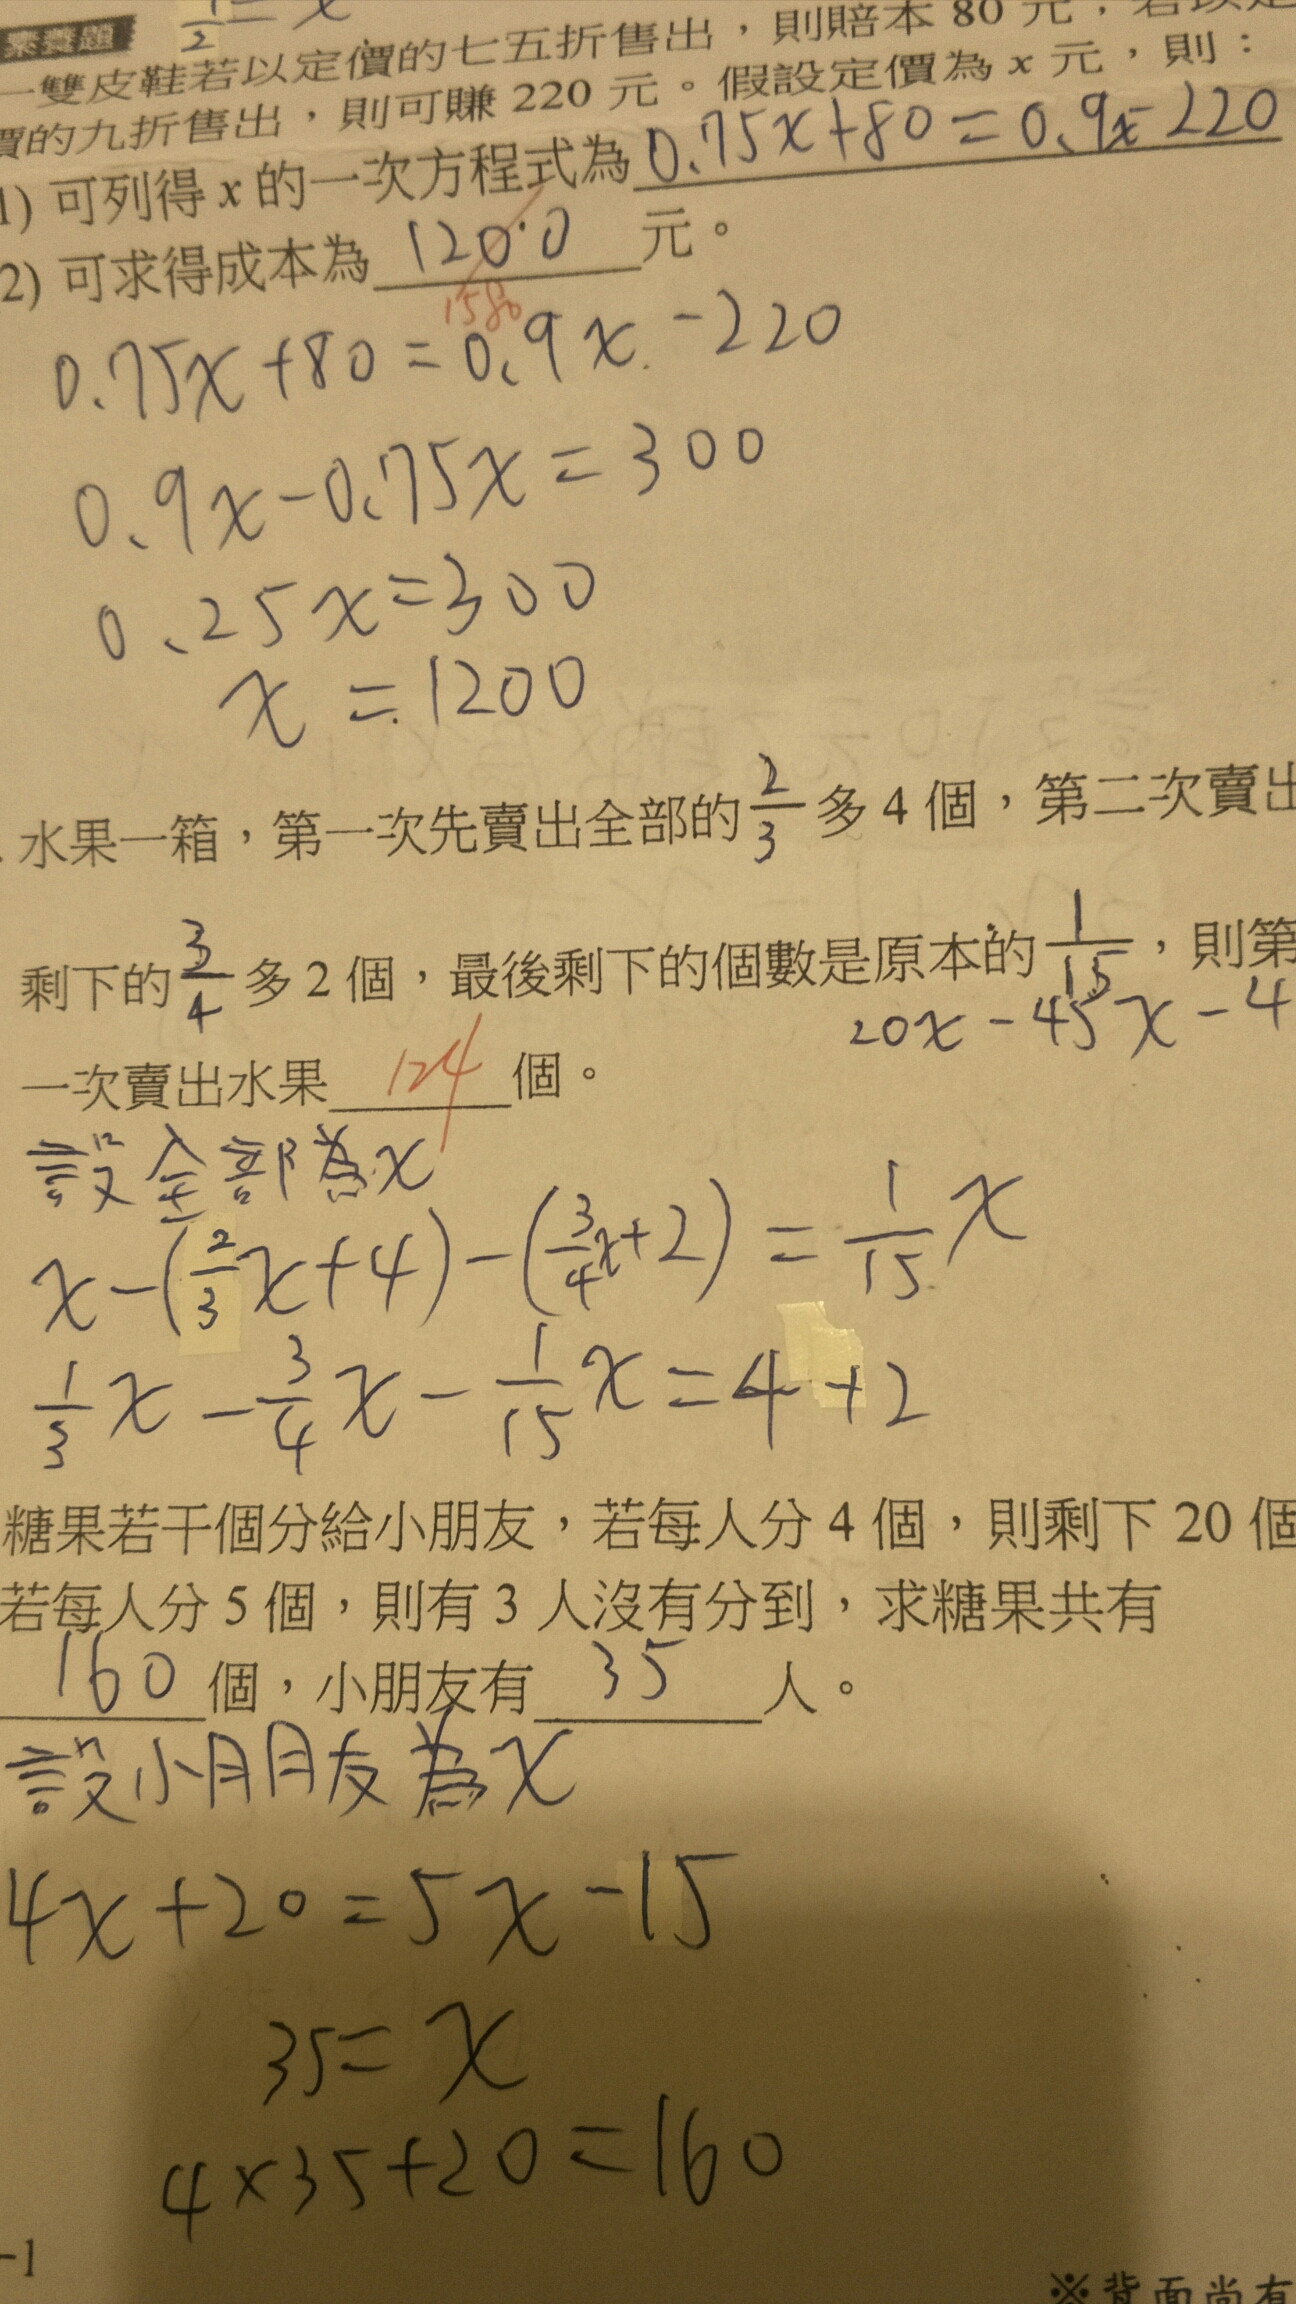 素養題
1/2 = x
一雙皮鞋若以定價的七五折售出，則賠本 80 元，若以定
價的九折售出，則可賺 220 元。假設定價為 x 元，則：
1) 可列得 x 的一次方程式為 0.75x+80=0.9x-220
2) 可求得成本為 1200 元。
1580
0.75x+80=0.9x-220
0.9x-0.75x=300
0.25x=300
x=1200
水果一箱，第一次先賣出全部的 2/3 多 4 個，第二次賣出
剩下的 3/4 多 2 個，最後剩下的個數是原本的 1/15，則第
20x-45x-4
一次賣出水果 124 個。
設全部為x
x-(2/3x+4)-(3/4x+2)=1/15x
1/3x-3/4x-1/15x=4+2
糖果若干個分給小朋友，若每人分 4 個，則剩下 20 個
若每人分 5 個，則有 3 人沒有分到，求糖果共有
160 個，小朋友有 35 人。
設小朋友為x
4x+20=5x-15
35=x
4×35+20=160
-1
※背面尚有